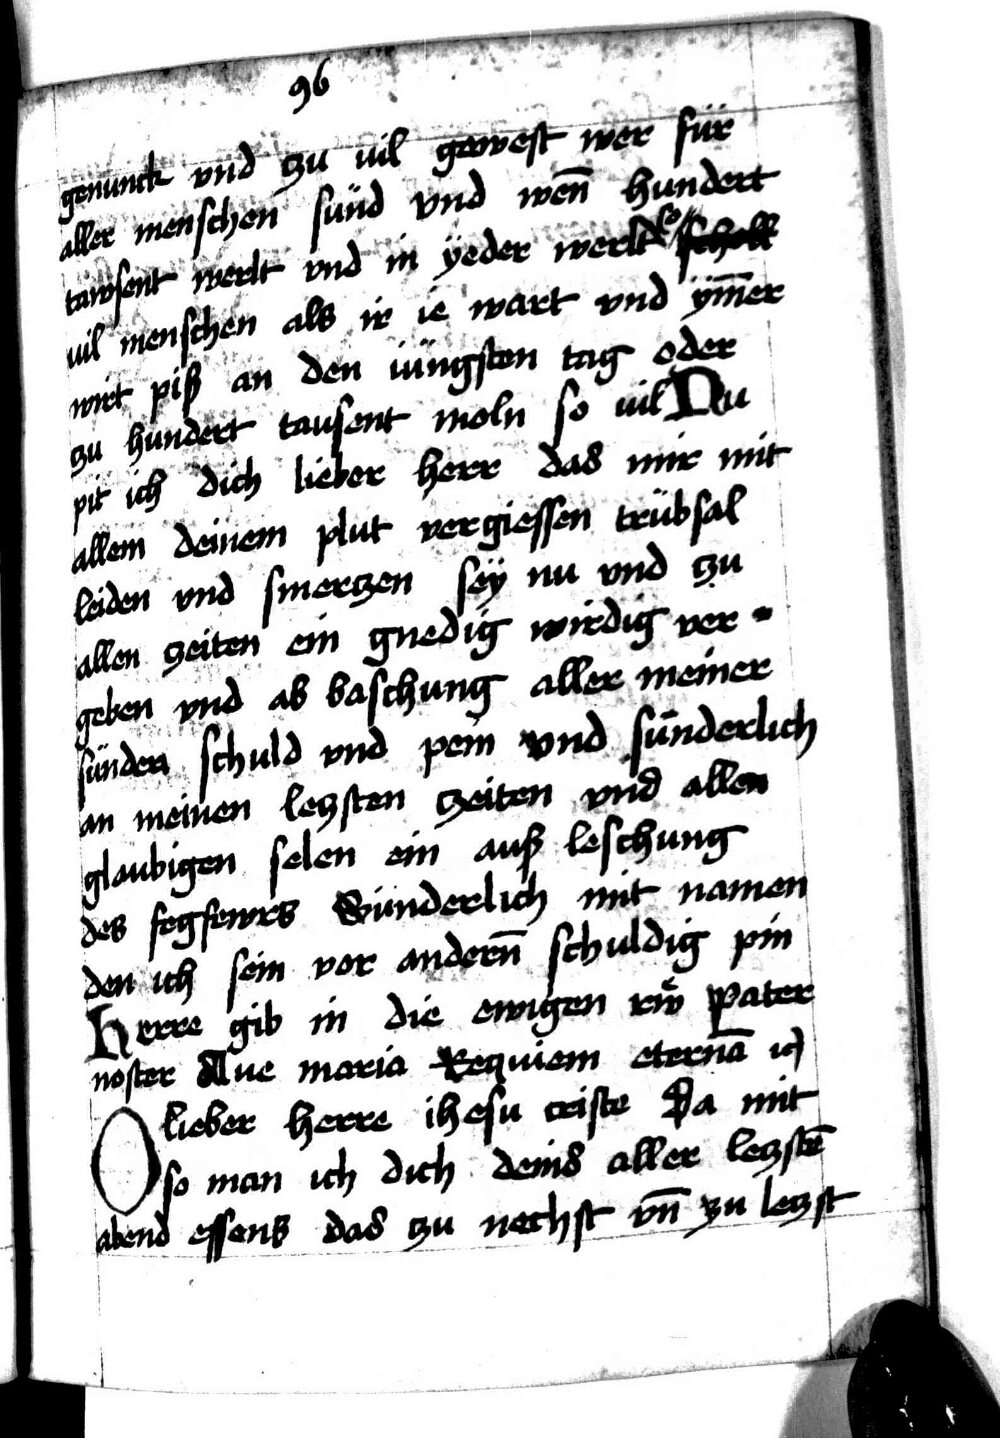 96
genunck vnd zu uil gewest wer für
aller menschen sünd vnd wen̄ hundert
tawsent werlt vnd in ÿeder werlt so
uil menschen als ir ie wart vnd ym̄er
wirt piß an den iüngsten tag oder
zu hundert tausent moln so uil Nu
pit ich dich lieber herr das mir mit
allem deinem plut vergiessen trübsal
leiden vnd smerczen seÿ nu vnd zu
allen zeiten ein gnedig wirdig ver
geben vnd ab baschung aller meiner
sünden schuld vnd pein vnd sünderlich
an meinen leczsten czeiten vnd allen
glaubigen selen ein auß leschung
des fegfewrs Sünderlich mit namen
den ich sein vor andern̄ schuldig pin
Herre gib in die ewigen rẘ Pater
noster Aue maria Requiem eternā
O lieber herre ihesu criste Da mit
so man ich dich deins aller leczstē
abend essens das zu nechst vn̄ zu leczst